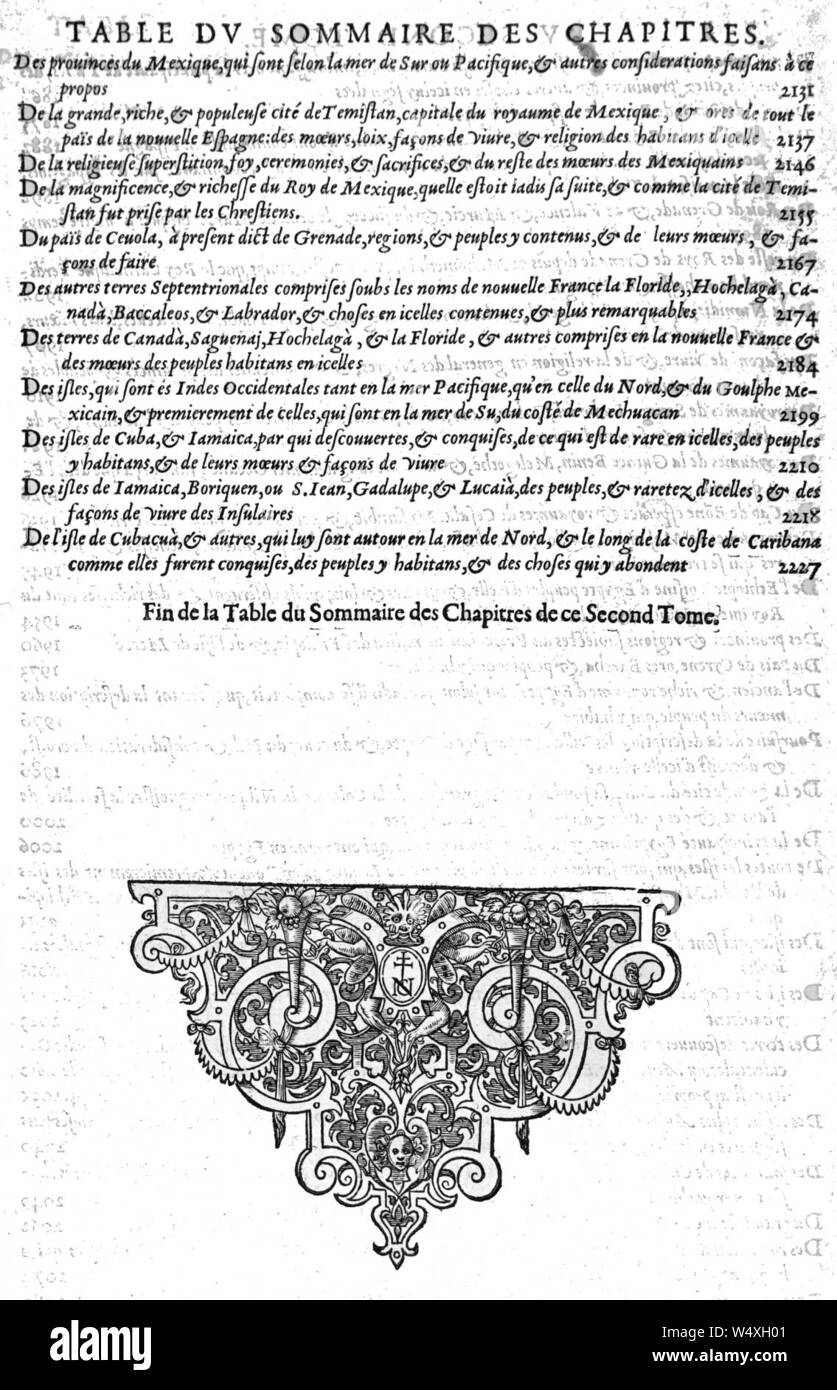 TABLE DV SOMMAIRE DES CHAPITRES.
Des prouinces du Mexique, qui sont selon la mer de Sur ou Pacifique, & autres considerations faisans à ce
propos 2131
De la grande, riche, & populeuse cité de Temistan, capitale du royaume de Mexique, & ores de tout le
païs de la nouuelle Espagne: des mœurs, loix, façons de viure, & religion des habitans d'icelle 2137
De la religieuse superstition, foy, ceremonies, & sacrifices, & du reste des mœurs des Mexiquains 2146
De la magnificence, & richesse du Roy de Mexique, quelle estoit iadis sa suite, & comme la cité de Temi-
stan fut prise par les Chrestiens. 2155
Du païs de Ceuola, à present dict de Grenade, regions, & peuples y contenus, & de leurs mœurs, & fa-
çons de faire 2167
Des autres terres Septentrionales comprises soubs les noms de nouuelle France la Floride,, Hochelagà, Ca-
nadà, Baccaleos, & Labrador, & choses en icelles contenues, & plus remarquables 2174
Des terres de Canadà, Saguenaj, Hochelagà, & la Floride, & autres comprises en la nouuelle France &
des mœurs des peuples habitans en icelles 2184
Des isles, qui sont és Indes Occidentales tant en la mer Pacifique, qu'en celle du Nord, & du Goulphe Me-
xicain, & premierement de celles, qui sont en la mer de Su, du costé de Mechuacan 2199
Des isles de Cuba, & Iamaica, par qui descouuertes, & conquises, de ce qui est de rare en icelles, des peuples
y habitans, & de leurs mœurs & façons de viure 2210
Des isles de Iamaica, Boriquen, ou S. Iean, Gadalupe, & Lucaià, des peuples, & raretez d'icelles, & des
façons de viure des Insulaires 2218
De l'isle de Cubacuà, & autres, qui luy sont autour en la mer de Nord, & le long de la coste de Caribana
comme elles furent conquises, des peuples y habitans, & des choses qui y abondent 2227
Fin de la Table du Sommaire des Chapitres de ce Second Tome.
N
alamy
Image ID: W4XH01
www.alamy.com